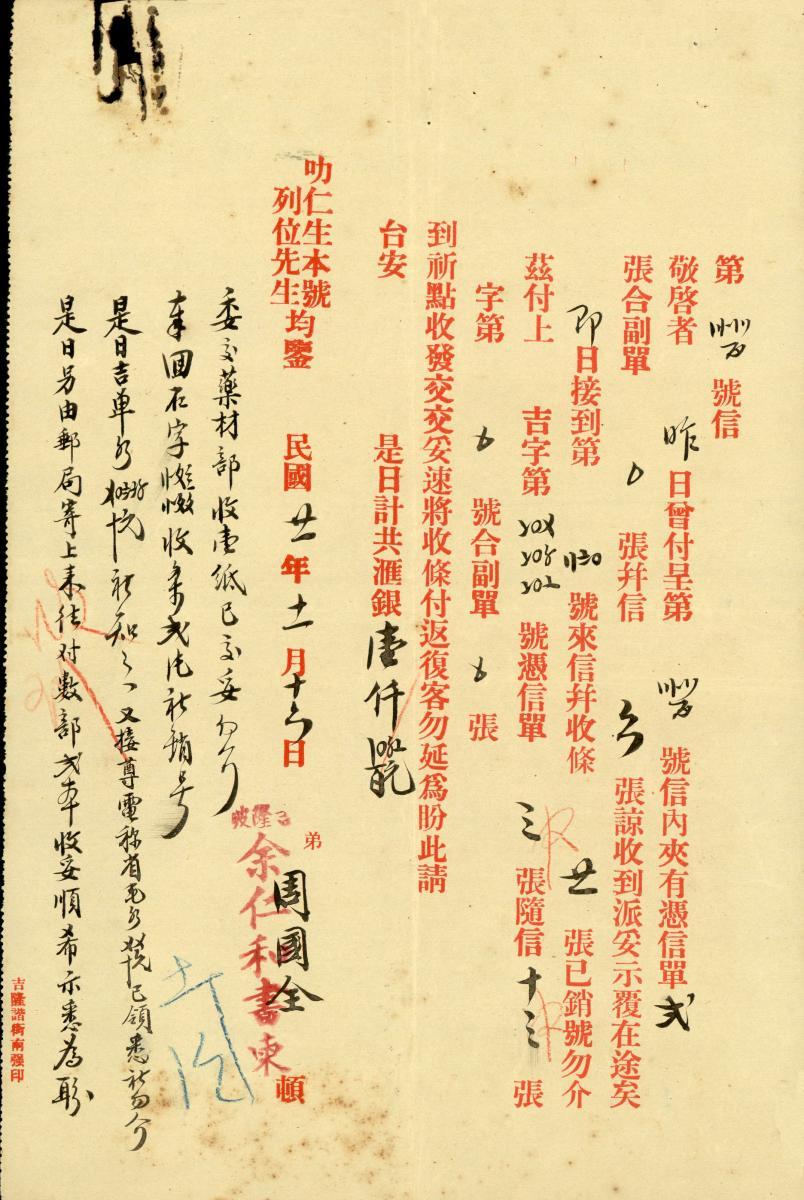 第 號信
敬啓者 昨 日曾付呈第 號信內夾有憑信單 弍
張合副單 張幷信 張諒收到派妥示覆在途矣
即 日接到第 號來信幷收條 廿 張已銷號勿介
茲付上 吉字第 號憑信單 三 張隨信 十三 張
字第 號合副單 張
到祈點收發交交妥速將收條付返復客勿延爲盼此請
台安 是日計共滙銀 壹仟
叻仁生本號
列位先生 均鑒 民國 廿一 年 十一 月 十六 日 弟 周國全 頓
吉隆坡
余仁和書柬
委交藥材部收壹紙已交妥勿介
收條弍
是日吉單 祈知之 又接尊電称 已領悉祈勿介
是日另由郵局寄上來往对數部弍本收妥順希示悉為盼
吉隆諧街南强印